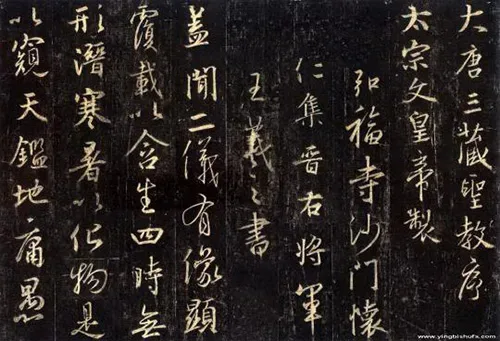 大唐三藏聖教序
太宗文皇帝製
弘福寺沙門懷
仁集晉右將軍
王羲之書
蓋聞二儀有像顯
覆載以含生四時無
形潛寒暑以化物是
以窺天鑑地庸愚
www.yingbishufa.com